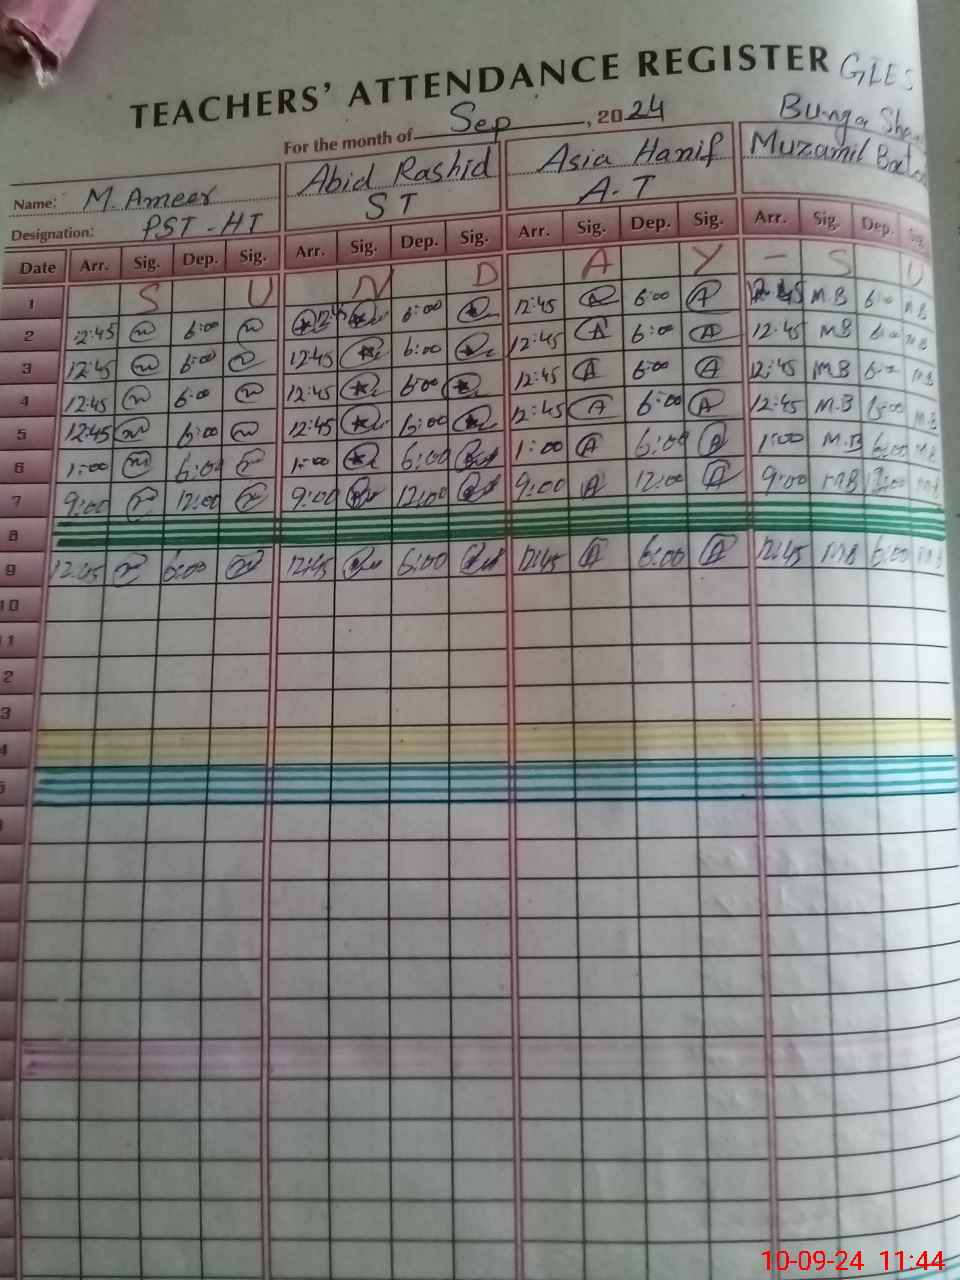 TEACHERS' ATTENDANCE REGISTER GLES
For the month of Sep, 2024 Bunga
Name: M. Ameer Abid Rashid Asia Hanif Muzamil
Designation: PST-HT ST A.T
Date Arr. Sig. Dep. Sig. Arr. Sig. Dep. Sig. Arr. Sig. Dep. Sig. Arr. Sig. Dep. Sig.
1 S U N D A Y - S U
2 12:45 6:00 12:45 6:00 12:45 A 6:00 A 12:45 M.B 6:00 M.B
3 12:45 6:00 12:45 6:00 12:45 A 6:00 A 12:45 MB 6:00 MB
4 12:45 6:00 12:45 6:00 12:45 A 6:00 A 12:45 MB 6:00 MB
5 12:45 6:00 12:45 6:00 12:45 A 6:00 A 12:45 M.B 6:00 M.B
6 1:00 6:00 1:00 6:00 1:00 A 6:00 A 1:00 M.B 6:00 MB
7 9:00 12:00 9:00 12:00 9:00 A 12:00 A 9:00 MB 12:00 MB
8
9 12:45 6:00 12:45 6:00 12:45 A 6:00 A 12:45 MB 6:00 MB
10
11
2
3
4
10-09-24 11:44